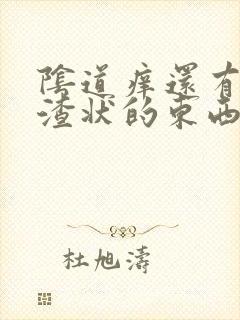 陰道痒還有
渣状的東西
杜旭濤